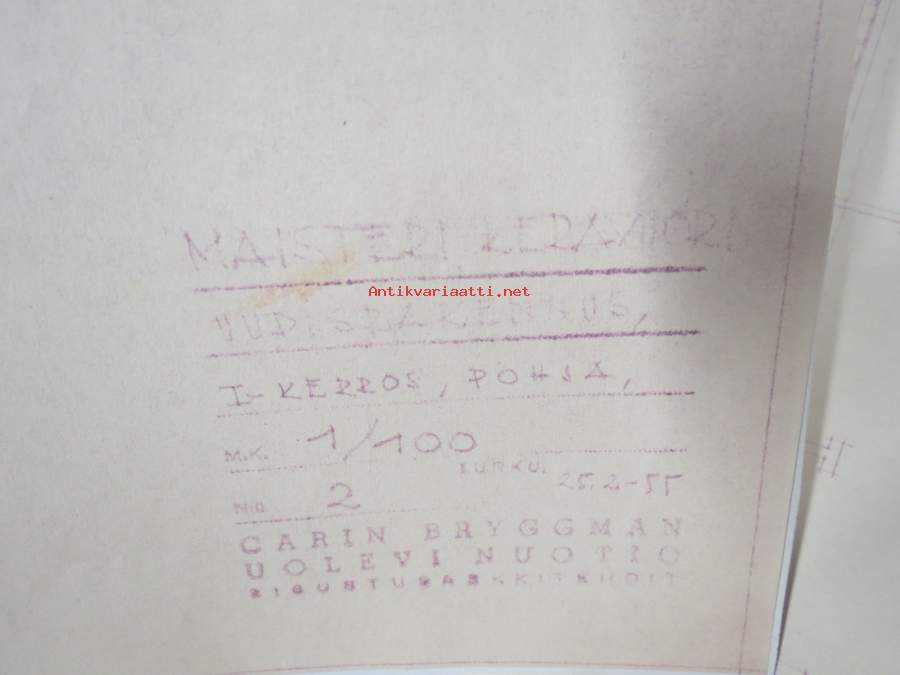 MAISTERI KERAVUORI
Antikvariaatti.net
UUDISRAKENNUS,
I-KERROS, POHJA,
M.K. 1/100
TURKU. 25.2-55
NO 2
CARIN BRYGGMAN
UOLEVI NUOTIO
SISUSTUSARKKITEHDIT